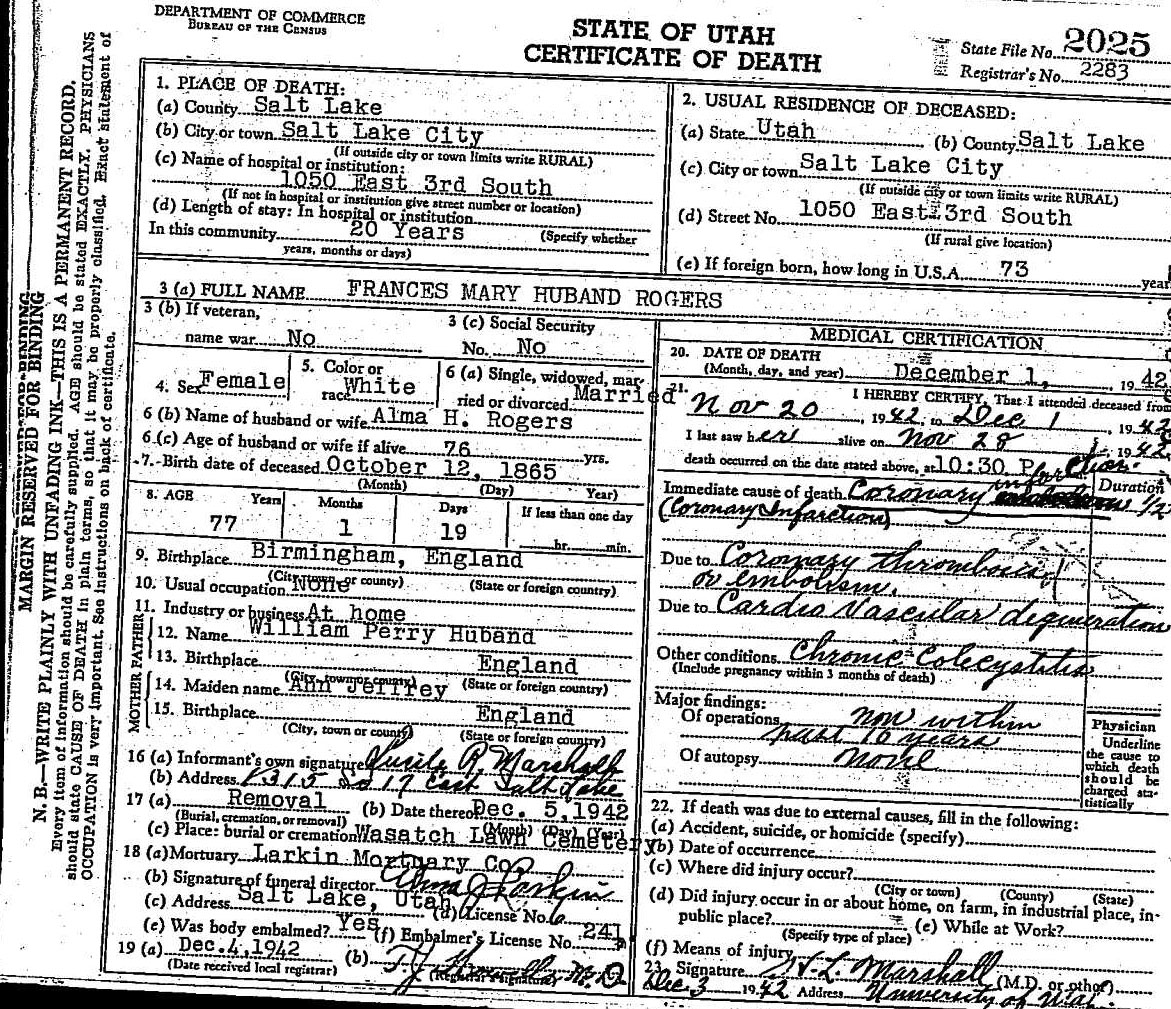 DEPARTMENT OF COMMERCE
BUREAU OF THE CENSUS
STATE OF UTAH
CERTIFICATE OF DEATH
State File No. 2025
Registrar's No. 2283
MARGIN RESERVED FOR BINDING
N. B.—WRITE PLAINLY WITH UNFADING INK—THIS IS A PERMANENT RECORD.
Every item of information should be carefully supplied. AGE should be stated EXACTLY. PHYSICIANS
should state CAUSE OF DEATH in plain terms, so that it may be properly classified. Exact statement of
OCCUPATION is very important. See instructions on back of certificate.
1. PLACE OF DEATH:
(a) County Salt Lake
(b) City or town Salt Lake City
(If outside city or town limits write RURAL)
(c) Name of hospital or institution:
1050 East 3rd South
(If not in hospital or institution give street number or location)
(d) Length of stay: In hospital or institution
In this community 20 Years (Specify whether
years, months or days)
2. USUAL RESIDENCE OF DECEASED:
(a) State Utah (b) County Salt Lake
(c) City or town Salt Lake City
(If outside city or town limits write RURAL)
(d) Street No. 1050 East 3rd South
(If rural give location)
(e) If foreign born, how long in U.S.A. 73 year
3 (a) FULL NAME FRANCES MARY HUBAND ROGERS
3 (b) If veteran,
name war No
3 (c) Social Security
No. No
4. Sex Female
5. Color or
race White
6 (a) Single, widowed, mar-
ried or divorced Married
6 (b) Name of husband or wife Alma H. Rogers
6 (c) Age of husband or wife if alive 76 yrs.
7. Birth date of deceased October 12, 1865
(Month) (Day) Year)
8. AGE Years Months Days If less than one day
77 1 19 hr. min.
9. Birthplace Birmingham, England
(City, town or county) (State or foreign country)
10. Usual occupation None
11. Industry or business At home
FATHER
12. Name William Perry Huband
13. Birthplace England
(City, town or county) (State or foreign country)
MOTHER
14. Maiden name Ann Jeffrey
15. Birthplace England
(City, town or county) (State or foreign country)
16 (a) Informant's own signature R Marshall
(b) Address 1315 So 17 East Salt Lake
17 (a) Removal (b) Date thereof Dec. 5, 1942
(Burial, cremation, or removal) (Month) (Day) (Year)
(c) Place: burial or cremation Wasatch Lawn Cemetery
18 (a) Mortuary Larkin Mortuary Co
(b) Signature of funeral director Alma J Larkin
(c) Address Salt Lake, Utah (d) License No. 6
(e) Was body embalmed? Yes (f) Embalmer's License No. 241
19 (a) Dec. 4, 1942 (b) T. J. M. D.
(Date received local registrar) (Registrar's signature)
MEDICAL CERTIFICATION
20. DATE OF DEATH
(Month, day, and year) December 1, 1942
21. I HEREBY CERTIFY, That I attended deceased from
Nov 20, 1942 to Dec 1, 1942
I last saw her alive on Nov 28, 1942
death occurred on the date stated above, at 10:30 P
Duration
infarction
Immediate cause of death Coronary 1/2
(Coronary Infarction)
Due to Coronary thrombosis
or embolism.
Due to Cardio Vascular degeneration
Other conditions Chronic Colecystitis
(Include pregnancy within 3 months of death)
Major findings:
Of operations non within
past 10 years
Of autopsy None
Physician
Underline
the cause to
which death
should be
charged sta-
tistically
22. If death was due to external causes, fill in the following:
(a) Accident, suicide, or homicide (specify)
(b) Date of occurrence
(c) Where did injury occur?
(City or town) (County) (State)
(d) Did injury occur in or about home, on farm, in industrial place, in-
public place? (e) While at Work?
(Specify type of place)
(f) Means of injury
23. Signature L. Marshall (M.D. or other)
Dec 3 1942 Address University of Utah